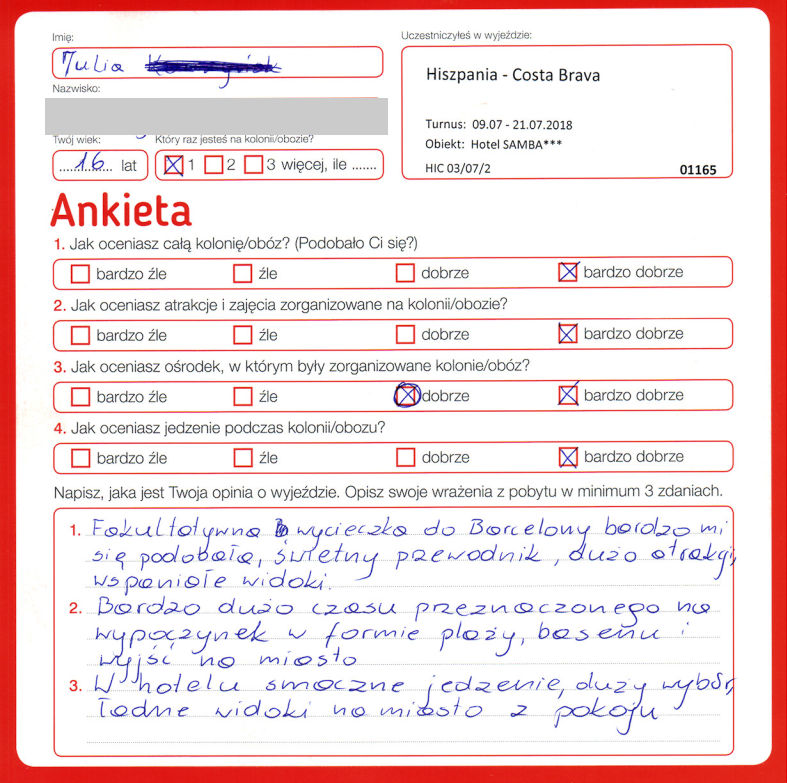 Imię:
Julia
Nazwisko:
Twój wiek: Który raz jesteś na kolonii/obozie?
16 lat 1 2 3 więcej, ile .......
Uczestniczyłeś w wyjeździe:
Hiszpania - Costa Brava
Turnus: 09.07 - 21.07.2018
Obiekt: Hotel SAMBA***
HIC 03/07/2 01165
Ankieta
1. Jak oceniasz całą kolonię/obóz? (Podobało Ci się?)
bardzo źle źle dobrze bardzo dobrze
2. Jak oceniasz atrakcje i zajęcia zorganizowane na kolonii/obozie?
bardzo źle źle dobrze bardzo dobrze
3. Jak oceniasz ośrodek, w którym były zorganizowane kolonie/obóz?
bardzo źle źle dobrze bardzo dobrze
4. Jak oceniasz jedzenie podczas kolonii/obozu?
bardzo źle źle dobrze bardzo dobrze
Napisz, jaka jest Twoja opinia o wyjeździe. Opisz swoje wrażenia z pobytu w minimum 3 zdaniach.
1. Fakultatywna wycieczka do Barcelony bardzo mi
się podobała, świetny przewodnik, dużo atrakcji,
wspaniałe widoki.
2. Bardzo dużo czasu przeznaczonego na
wypoczynek w formie plaży, basenu i
wyjść na miasto
3. W hotelu smaczne jedzenie, duży wybór,
ładne widoki na miasto z pokoju